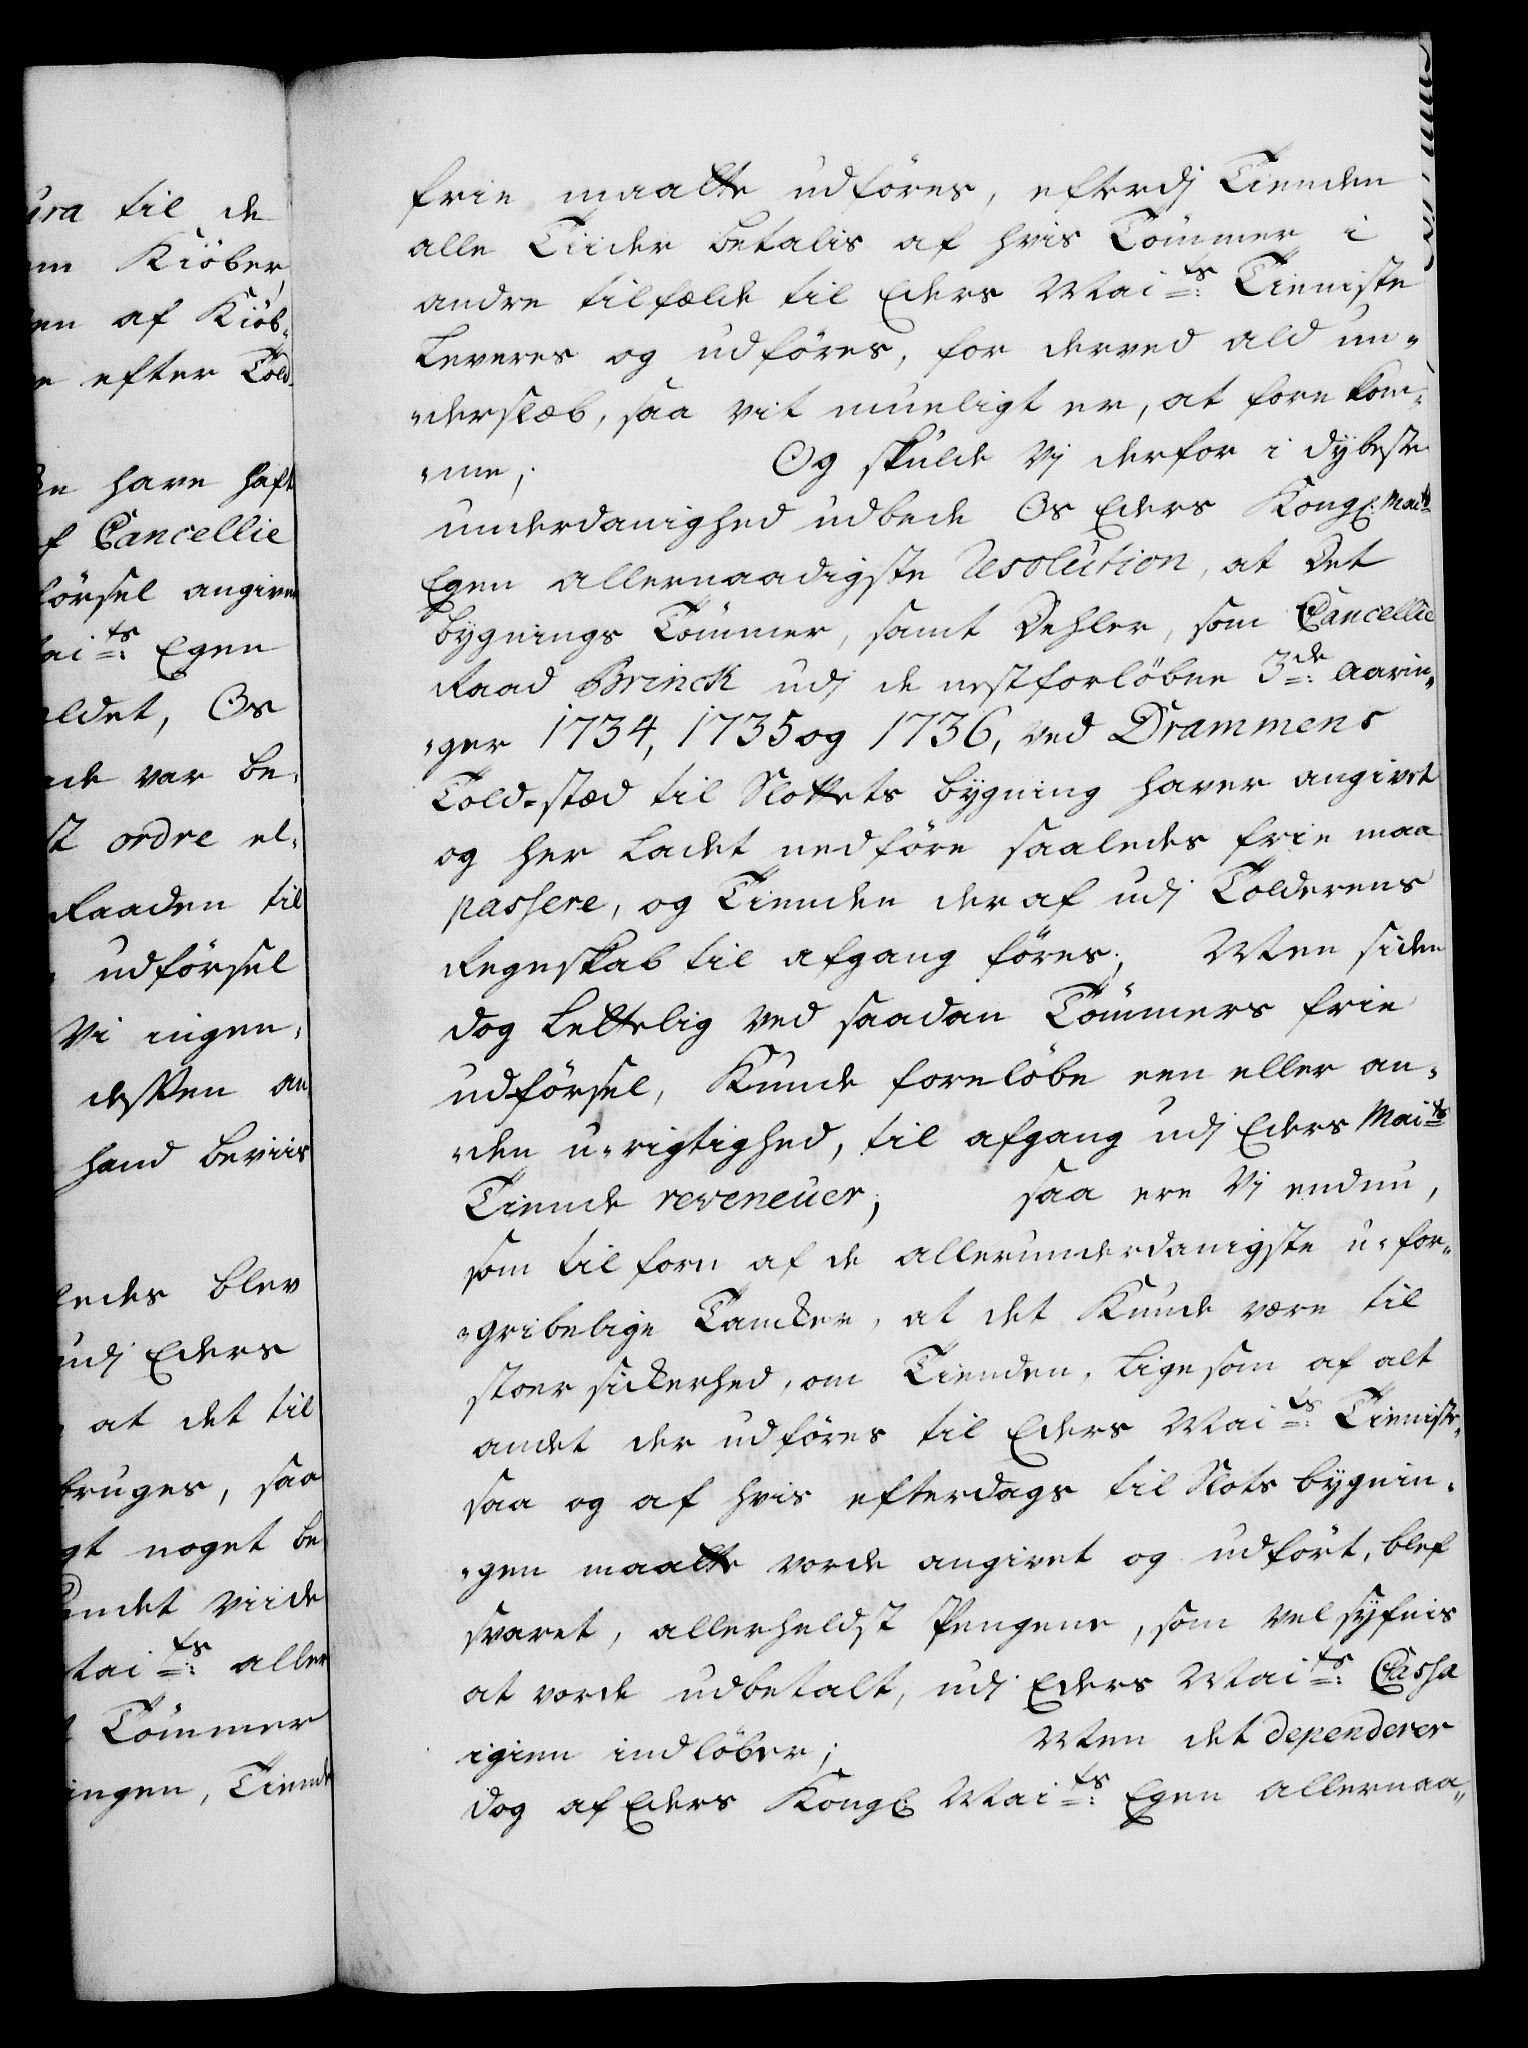 ura til de
Kiöber
en af Kiöb-
efter Told-
have haft
f Cancellie
förset angiven
ai ts: Egen
ldet, Os
nde var be-
st ordre el-
Raaden til
udförsel
Vi ingen-
dessen an
hand beviis
ledes blev
udj Eders
at det til
bruges, saa
gt noget be
undet viide
Mai ts: aller
Tömmer
ingen, Tiende
frie maatte udföres, efterdj Tienden
alle Tiider betalis af hvis Tömmer i
andre tilfælde til Eders Mai ts: Tieniste
Leveres og udföres, for derved ald un-
-derslæb, saa vit mueligt er, at forekom-
-me; Og skulde Vj derfor i dybeste
underdanighed udbede Os Eders Kongl: Mai ts
Egen allernaadigste Resolution, at Det
bygnings Tömmer, samt Dehler, som Cancellie
Raad Brinck udj de nestforløbne 3 de: Aarin-
-ger 1734, 1735 og 1736, ved Drammens
Told-stæd til Slottets bygning haver angivet
og her Ladet nedföre saaledes frie maa
passere, og Tienden deraf udj Tolderens
Regenskab til afgang föres; Men siden
dog Lettelig ved saadan Tömmers frie
udförsel, Kunde foreløbe een eller an-
-den u-rigtighed, til afgang udj Eders Mai ts
Tiende reveneuer; saa ere Vj endnu,
som tilforn af de allerunderdanigste u-for-
-gribelige Tancker, at det Kunde være til
stoer sickerhed, om Tienden, Ligesom af alt
andet der udföres til Eders Mai ts: Tieniste,
saa og af hvis efterdags til Slots bygnin-
-gen maatte vorde angivet og udfört, blef
svaret, allerheldst Pengene, som vel syfnis
at vorde udbetalt, udj Eders Mai ts: Cassa
igien indløber; Men det dependerer
dog af Eders Kongl Mai ts: Egen allernaa-